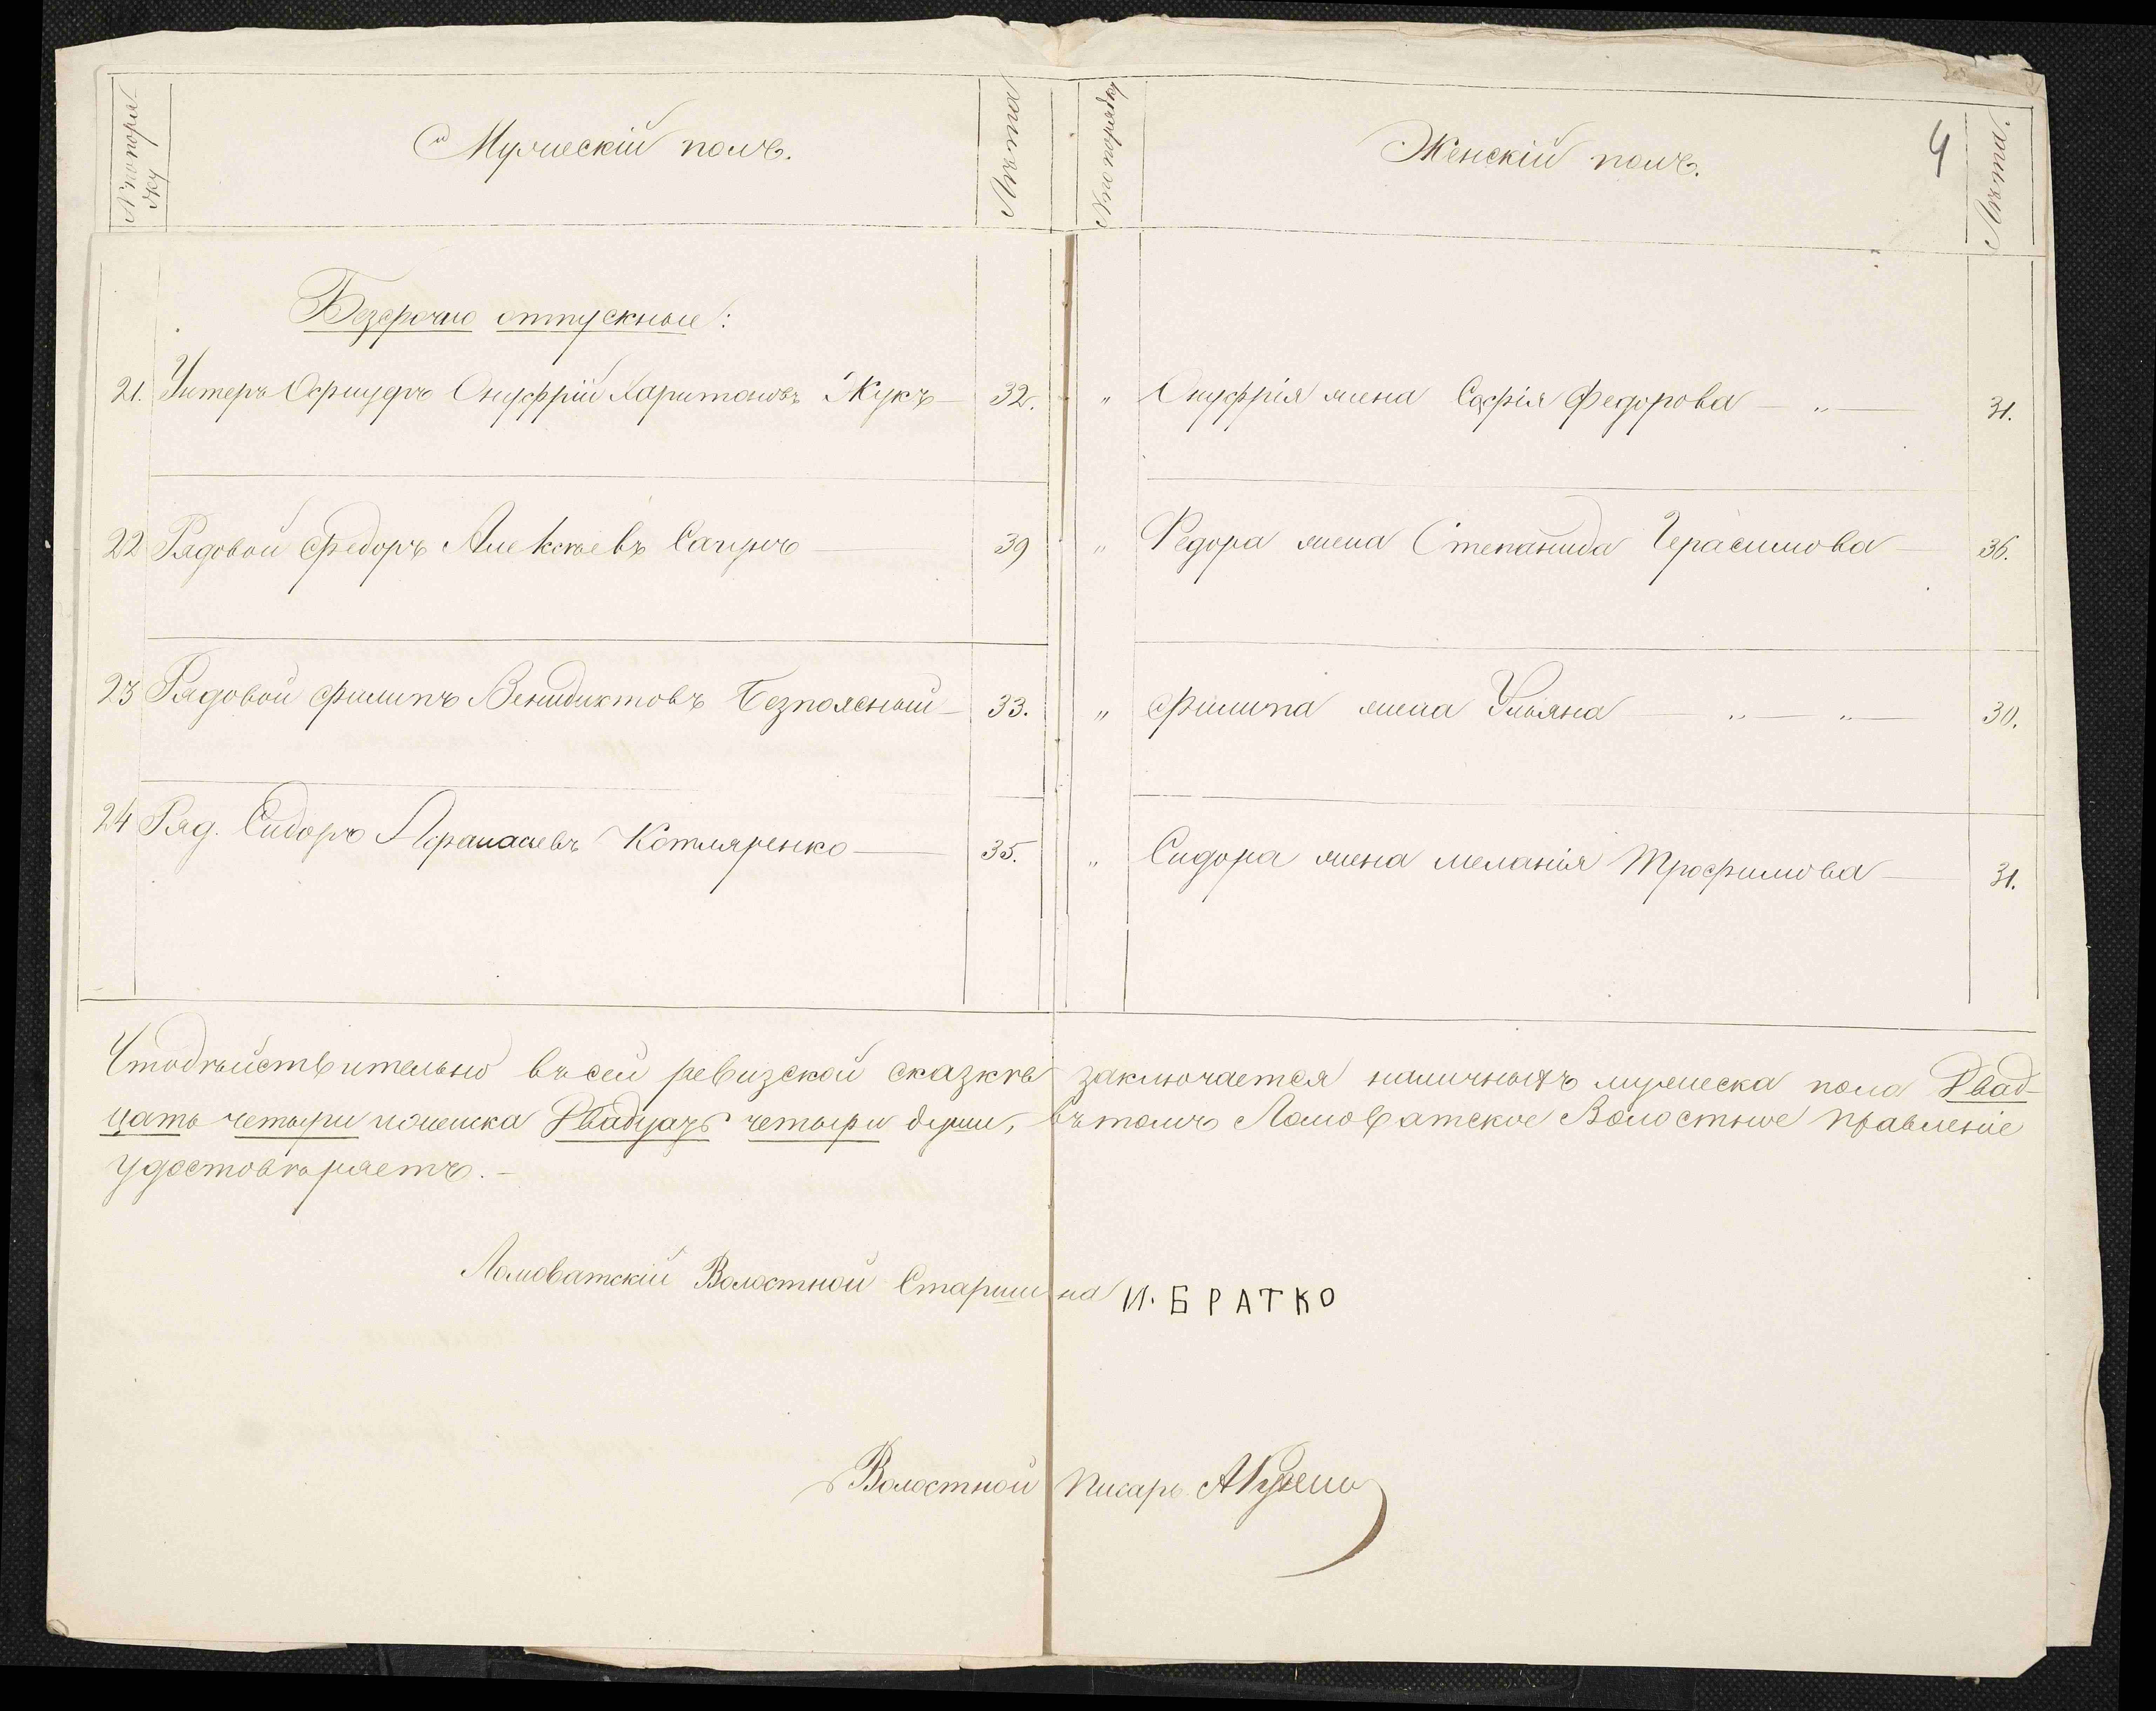 № по поряд-
ку
Мужескій полъ.
Лѣта
№ по порядку
Женскій полъ.
4
Лѣта.
Безсрочно отпускные:
21. Унтеръ Офицеръ Онуфрій Харитоновъ Жукъ — 32.
" Онуфрія жена Софія Федорова — " — 31.
22 Рядовой Федоръ Алексѣевъ Сагунъ 39
" Федора жена Степанида Герасимова — 36.
23 Рядовой Филипъ Венидиктовъ Безпоясный — 33.
" Филипа жена Ульяна — " — " — 30.
24 Ряд. Сидоръ Афанасьевъ Котляренко — 35.
" Сидора жена Меланія Трофимова — 31.
Что дѣйствительно въ сей ревизской сказкѣ заключается наличныхъ мужеска пола Двад-
цать четыри и женска Двадцать четыри души, въ томъ Ломоватское Волостное Правленіе
удостовѣряетъ. —
Ломоватскій Волостной Старшина И. БРАТКО
Волостной Писарь